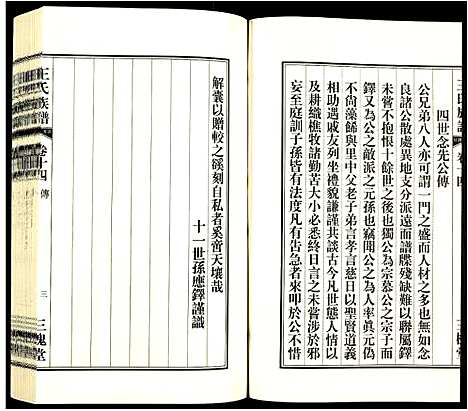 王氏族譜
卷十四
四世念先公傳
公兄弟八人亦可謂一門之盛而人材之多
良諸公散處異地支分派遠而譜牒殘缺難以聯屬鐸
未嘗不抱恨十餘世之後也獨公為宗慕公之宗子而
鐸又為公之敵派之元孫也竊聞公之為人率眞元偽
不尙藻餙與里中父老子弟言孝言慈日以聖賢道義
相助遇戚友列坐禮貌謙謹共談古今凡世態人情以
及耕織樵牧諸勤苦大小必悉終日言之未嘗涉於邪
妄至庭訓子孫皆有法度凡有告急者來叩於公不惜
解囊以贈較之谿刻自私者奚啻天壤哉
十一世孫應鐸謹識
王氏族譜
卷十四 傳
三
三槐堂